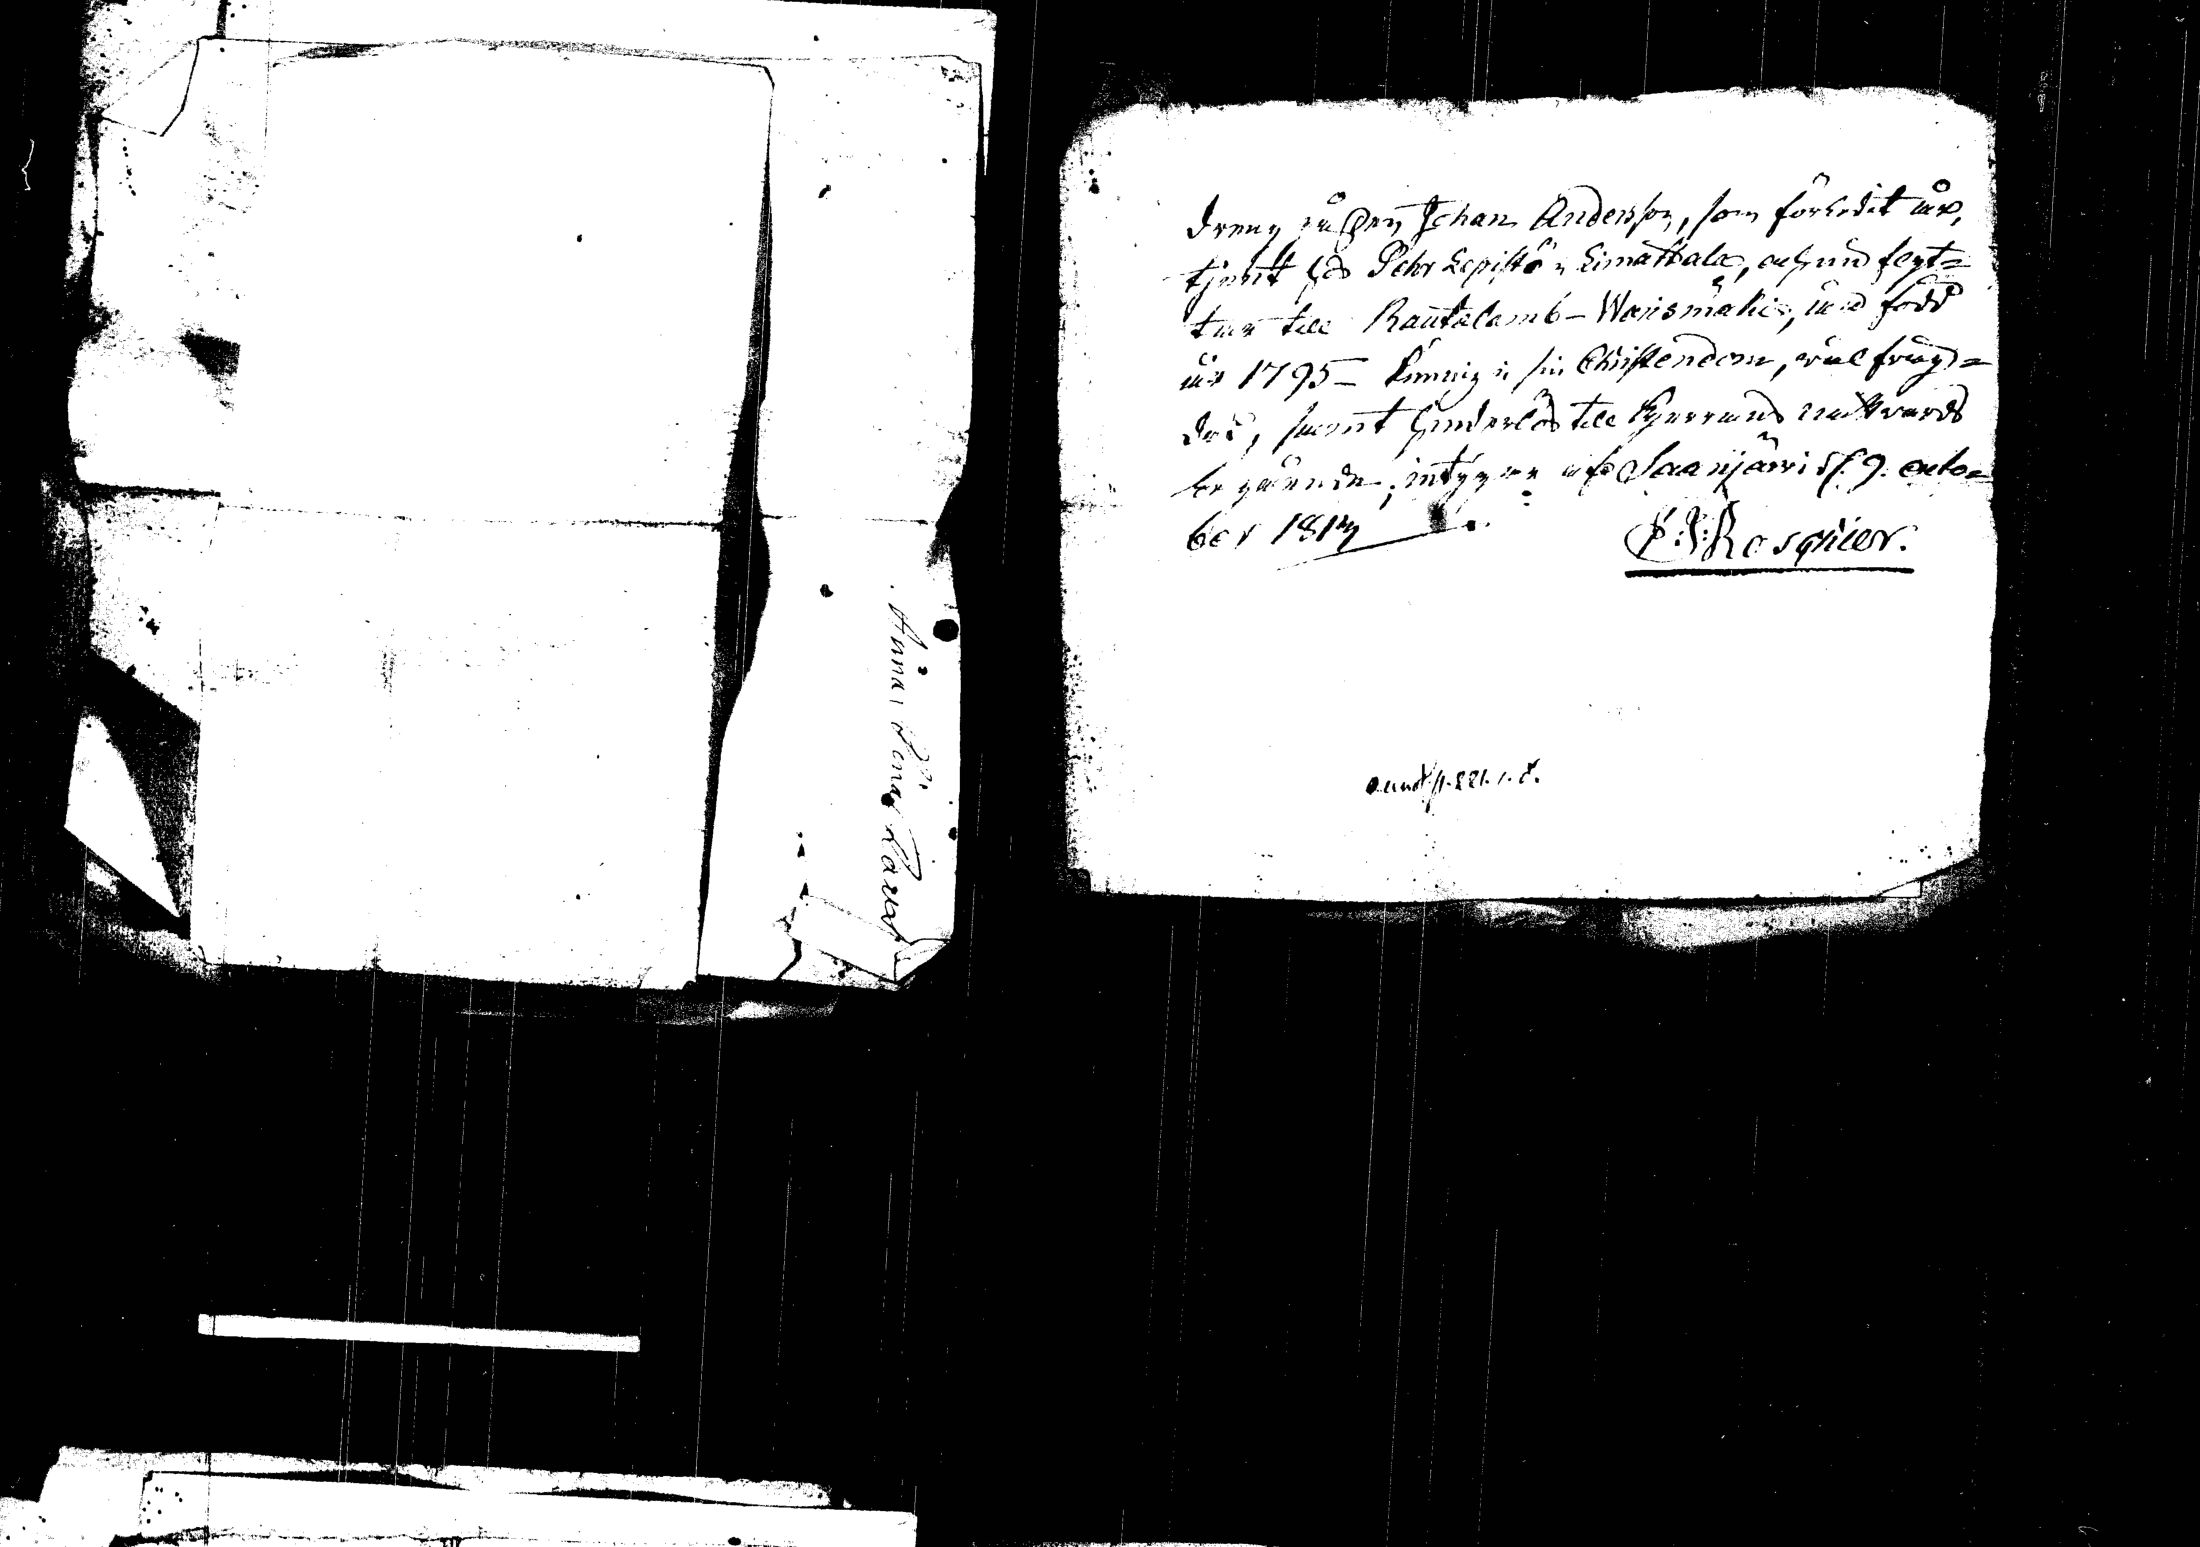 Dreng påken Johan Andersson, som förledit år,
tjent hos Pehr Lepistö i Eimattala, och nu feyt=
tar till Rautalamb-Warismäki, är född
år 1795 - kunnig i sin Christendom, väl frägd=
dad, samt hinderlös till Herrans nattvards
begående; intygar af Saarijärvi d. 9. octo=
ber 181
P: J: Rosqvier.
Anna Lena